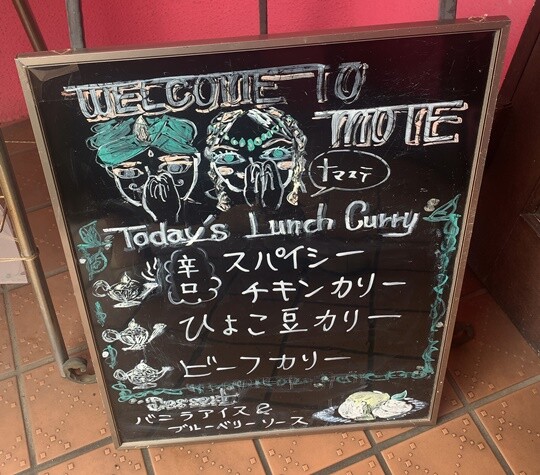 WELCOME TO
MOTE
ナマステ
Today's Lunch Curry
辛口
スパイシー
チキンカリー
ひよこ豆カリー
ビーフカリー
Dessert
バニラアイス&
ブルーベリーソース